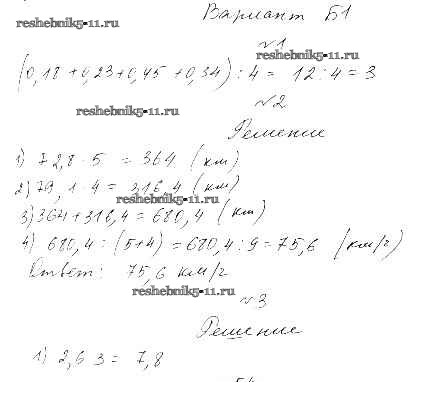 Вариант Б1
reshebnik5-11.ru
№1
reshebnik5-11.ru
(0,18 + 0,23 + 0,45 + 0,34) : 4 = 12 : 4 = 3
reshebnik5-11.ru
№2
Решение
1) 72,8 · 5 = 364 (км)
2) 79,1 · 4 = 316,4 (км)
reshebnik5-11.ru
3) 364 + 316,4 = 680,4 (км)
4) 680,4 : (5+4) = 680,4 : 9 = 75,6 (км/г)
Ответ: 75,6 км/г
reshebnik5-11.ru
№3
Решение
1) 2,6 3 = 7,8